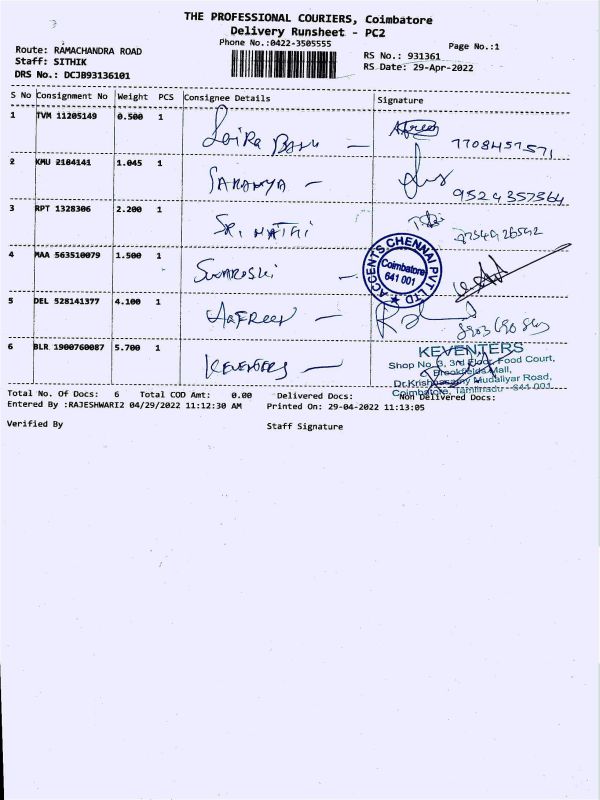 THE PROFESSIONAL COURIERS, Coimbatore
Delivery Runsheet - PC2
Phone No.:0422-3505555
Page No.:1
Route: RAMACHANDRA ROAD
Staff: SITHIK
DRS No.: DCJB93136101
RS No.: 931361
RS Date: 29-Apr-2022
S No Consignment No Weight PCS Consignee Details Signature
1 TVM 11205149 0.500 1
2 KMU 2184141 1.045 1 SARANYA -
3 RPT 1328306 2.200 1
4 MAA 563510079 1.500 1
ACCENTS CHENNAI PVT LTD
Coimbatore
641 001
5 DEL 528141377 4.100 1 AaFREEN -
6 BLR 1900760087 5.700 1 KEVENTERS -
KEVENTERS
Shop No. 3, 3rd Floor, Food Court,
Brookfields Mall,
Dr.Krishnasamy Mudaliyar Road,
Coimbatore, Tamilnadu - 641 001
Total No. Of Docs: 6 Total COD Amt: 0.00 Delivered Docs: Non Delivered Docs:
Entered By :RAJESHWARI2 04/29/2022 11:12:30 AM Printed On: 29-04-2022 11:13:05
Verified By Staff Signature